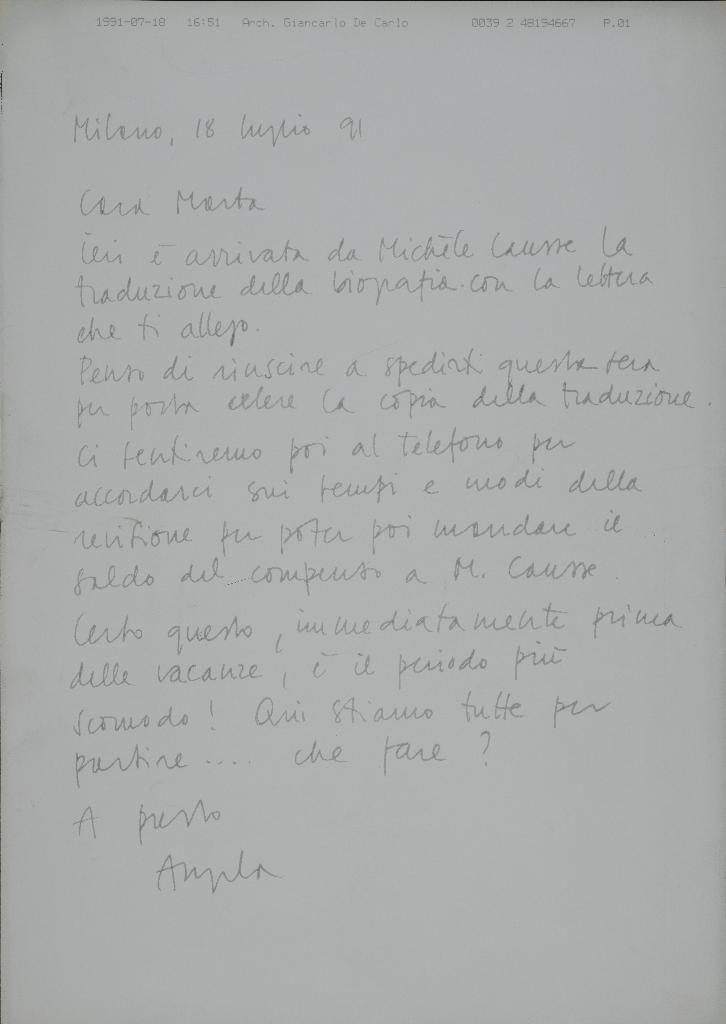 1991-07-18 16:51 Arch. Giancarlo De Carlo 0039 2 48194667 P.01
Milano, 18 luglio 91
Cara Marta
Ieri è arrivata da Michèle Causse la
traduzione della biografia con la lettera
che ti allego.
Penso di riuscire a spedirti questa sera
per posta celere la copia della traduzione.
Ci sentiremo poi al telefono per
accordarci sui tempi e modi della
revisione per poter poi mandare il
saldo del compenso a M. Causse.
Certo questo, immediatamente prima
delle vacanze, è il periodo più
scomodo! Qui stiamo tutte per
partire .... che fare ?
A presto
Angela